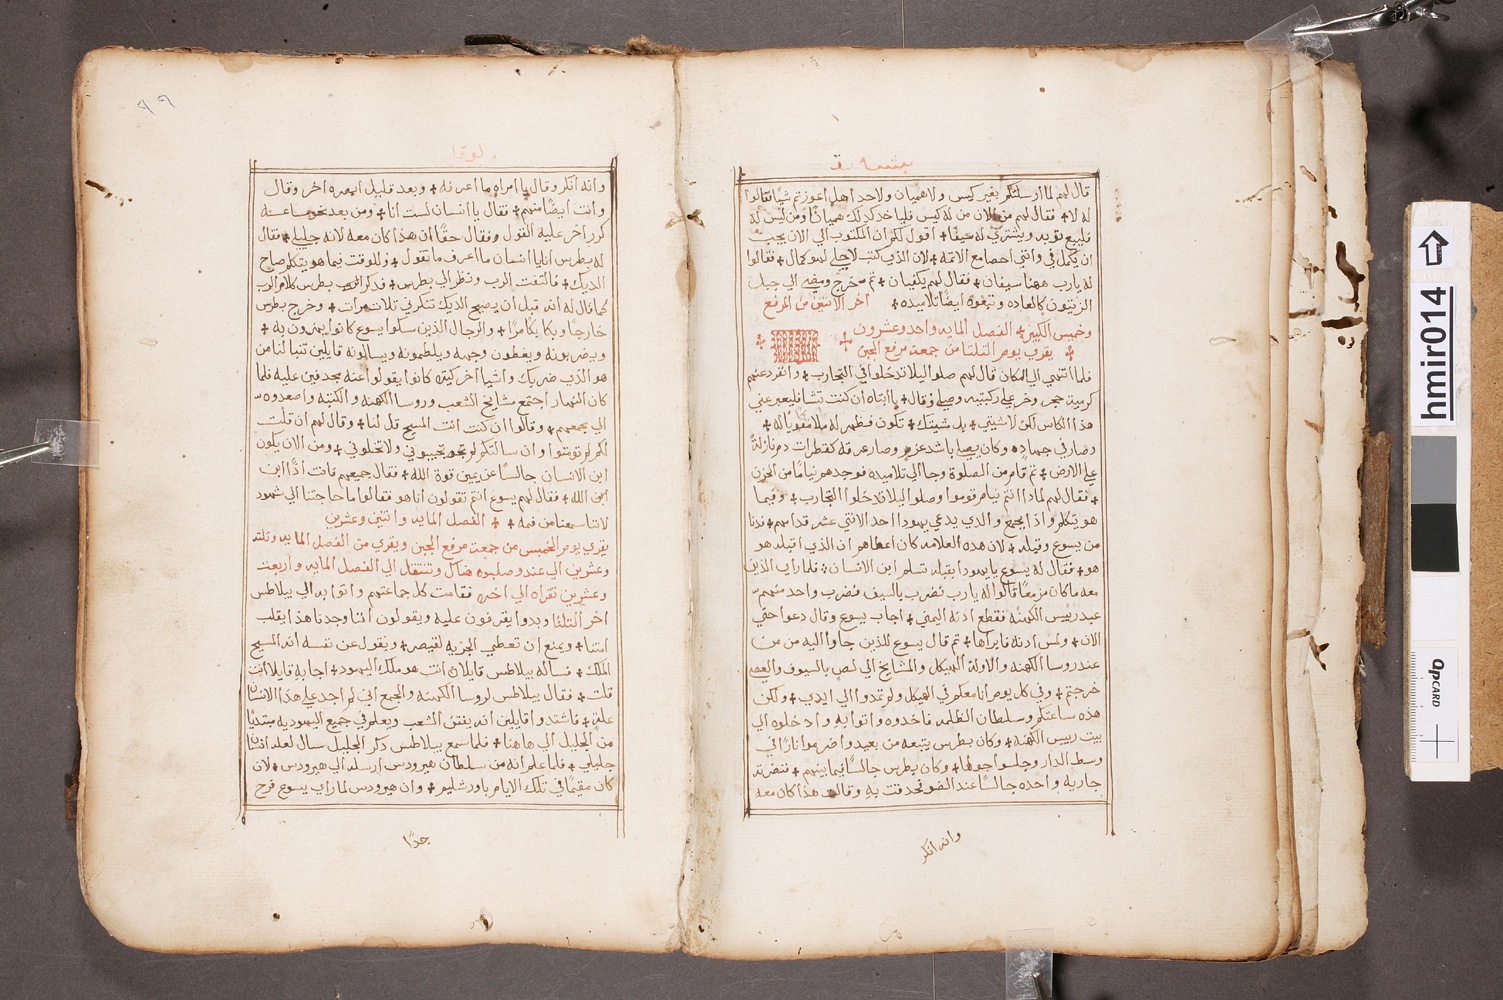 بشــارة
قال لهم لما ارسلتكم بغير كيس ولا هميان ولا حدا هل اعوزتم شيًا فقالوا
له لا ✢ فقال لهم من الان من له كيس فلياخد كدلك هميانًا ومن ليس له
فليبيع توبه ويشتري له سيفًا ✢ اقول لكم ان المكتوب الي الان يجب
ان يكمل في واني احصا مع الاتمة ✢ لان الدي كتب لاجلي لهو كمال ✢ فقالوا
له يارب ههنا سيفان ✢ فقال لهم يكفيان ✢ تم خرج ومضي الي جبل
الزيتون كالعاده وتبعوه ايضًا تلاميده ✢ اخر الاتنين من المرفع
وخميس الكبير ✢ الفصل المايه واحد وعشرون
✢ يقري يوم التلتا من جمعة مرفع الجبن
فلما انتهي الي المكان قال لهم صلوا ليلا تدخلوا في التجارب ✢ وانفرد عنهم
كرمية حجر وخر علي ركبتيه وصلي وقال ✢ يا ابتاه ان كنت تشا فليعبر عني
هذا الكاس لكن لا مشيتي ✢ بل مشيتك ✢ تكون فظهر له ملاك مقويًا له ✢
وصار عرقه كقطرات دم نازلة
علي الارض ✢ تم قام من الصلوة وجا الي تلاميده فوجدهم نيامًا من الحزن
✢ فقال لهم لمادا انتم نيام قوموا وصلوا ليلا تدخلوا التجارب ✢ وفيما
هو يتكلم وادا بجمع والدي يدعي يهودا احد الاتني عشر قدامهم ✢ فدنا
من يسوع وقبله ✢ لان هده العلامه كان اعطاهم ان الذي اقبله هو
هو ✢ فقال له يسوع يا يهودا بقبله تسلم ابن الانسان ✢ فلما راي الذين
معه ما كان مزمعًا قالوا له يارب نضرب بالسيف فضرب واحد منهم
عبد رييس الكهنه فقطع ادنه اليمني ✢ اجاب يسوع وقال دعوا حتي
الان ✢ ولمس ادنه فابراها ✢ تم قال يسوع للذين جاوا اليه من
عند روسا الكهنه والاوله الهيكل والمشايخ الي لص بالسيوف والعصي
خرجتم ✢ وفي كل يوم انا معكم في الهيكل ولم تمدوا الي ايدي ✢ ولكن
هذه ساعتكم وسلطان الظلمه فاخدوه واتوا به وادخلوه الي
بيت رييس الكهنه ✢ وكان بطرس يتبعه من بعيد واضرموا نارًا في
وسط الدار وجلسوا حولها ✢ وكان بطرس جالسًا فيما بينهم ✢ فنضرته
جاريه واحده جالسًا عند الضو فحدقت به وقالت هذا كان معه
وانه انكر
لوقا
٩٩
وانه انكر وقال يا امراه ما اعرفه ✢ وبعد قليل ابصره اخر وقال
وانت ايضًا منهم ✢ فقال يا انسان لست انا ✢ ومن بعد نحو ساعة
كرر اخر عليه القول وفقال حقًا ان هدا كان معه لانه جليلي ✢ فقال
له بطرس انا يا انسان ما اعرف ما تقول ✢ وللوقت فيما هو يتكلم صاح
الديك ✢ فالتفت الرب ونظر الي بطرس ✢ فدكر بطرس كلام الرب
كما قال له انه قبل ان يصيح الديك تنكرني تلات مرات ✢ وخرج بطرس
خارجًا وبكا بكا مرًا ✢ والرجال الذين مسكوا يسوع كانوا يهزون به ✢
ويضربونه ويغطون وجهه ويلطمونه ويسالونه قايلين تنبا لنا من
هو الذي ضربك واشيا اخر كتيره كانوا يقولوا عنه مجدفين عليه فلما
كان النهار اجتمع مشايخ الشعب وروسا الكهنه والكتبه واصعدوه
الي مجمعهم ✢ وقالوا ان كنت انت المسيح قل لنا ✢ وقال لهم ان قلت
لكم لم تومنوا وان سالتكم لم تجيبوني ولا تخلوني ✢ ومن الان يكون
ابن الانسان جالسًا عن يمين قوة الله ✢ فقال جميعهم فانت ادًا ابن
الله ✢ فقال لهم يسوع انتم تقولون انا هو فقالوا ما حاجتنا الي شهود
لاننا سمعنا من فمه ✢ ✢ الفصل المايه واتنين وعشرين
يقري يوم الخميس من جمعة مرفع الجبن ويقري من الفصل المايه وتلته
وعشرين الي عند وصلبوه هناك وتنتقل الي الفصل المايه واربعت
وعشرين تقراه الي اخره فقامت كل جماعتهم واتوا به الي بيلاطس
اخر التلتا وبدوا يقرفون عليه ويقولون اننا وجدنا هذا يقلب
امتنا ✢ ويمنع ان تعطي الجزيه لقيصر ✢ ويقول عن نفسه انه المسيح
الملك ✢ فساله بيلاطس قايلًا انت هو ملك اليهود ✢ اجابه قايلًا انت
قلت ✢ فقال بيلاطس لروسا الكهنه والجمع اني لم اجد علي هذا الانسان
علة ✢ فاشتدوا قايلين انه يفتن الشعب ويعلم في جميع اليهوديه مبتديًا
من الجليل الي هاهنا ✢ فلما سمع بيلاطس دكر الجليل سال لعله انسان
جليلي ✢ فلما علم انه من سلطان هيرودس ارسله الي هيرودس ✢ لان
كان مقيمًا في تلك الايام باورشليم ✢ وان هيرودس لما راي يسوع فرح
جدًا
hmir014
QPCARD